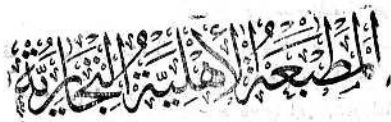 المَطبَعَة الأَهْلِيَّةُ التِّجَارِيَّة